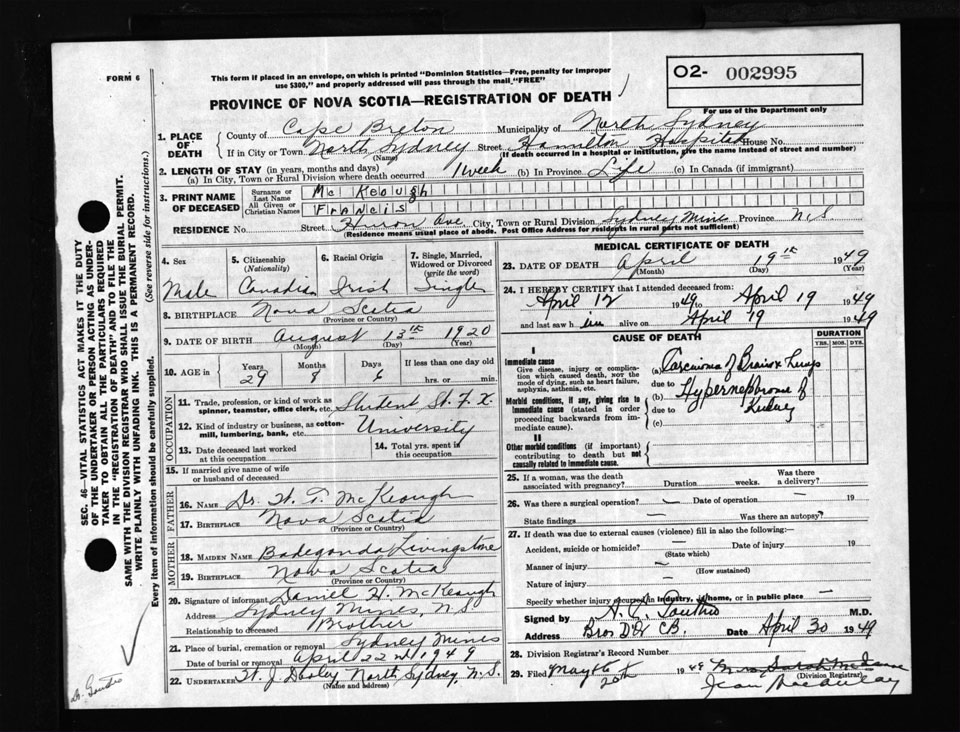 FORM 6
This form if placed in an envelope, on which is printed "Dominion Statistics—Free, penalty for improper
use $300," and properly addressed will pass through the mail "FREE"
O2- 002995
For use of the Department only
PROVINCE OF NOVA SCOTIA—REGISTRATION OF DEATH
SEC. 46—VITAL STATISTICS ACT MAKES IT THE DUTY
OF THE UNDERTAKER OR PERSON ACTING AS UNDER-
TAKER TO OBTAIN ALL THE PARTICULARS REQUIRED
IN THE "REGISTRATION OF DEATH" AND TO FILE THE
SAME WITH THE DIVISION REGISTRAR WHO SHALL ISSUE THE BURIAL PERMIT.
WRITE PLAINLY WITH UNFADING INK. THIS IS A PERMANENT RECORD.
Every item of information should be carefully supplied. (See reverse side for instructions.)
1. PLACE OF DEATH
County of Cape Breton Municipality of North Sydney
If in City or Town North Sydney Street Hamilton Hospital House No.
(Name) (If death occurred in a hospital or institution, give the name instead of street and number)
2. LENGTH OF STAY (in years, months and days)
(a) In City, Town or Rural Division where death occurred 1 week (b) In Province Life (c) In Canada (if immigrant)
3. PRINT NAME OF DECEASED
Surname or Last Name Mc Keough
All Given or Christian Names Francis
RESIDENCE No. Street Huron Ave City, Town or Rural Division Sydney Mines Province N.S.
(Residence means usual place of abode. Post Office Address for residents in rural parts not sufficient)
4. Sex
Male
5. Citizenship
(Nationality)
Canadian
6. Racial Origin
Irish
7. Single, Married, Widowed or Divorced
(write the word)
Single
8. BIRTHPLACE Nova Scotia
(Province or Country)
9. DATE OF BIRTH August 13th 1920
(Month) (Day) (Year)
10. AGE in Years Months Days If less than one day old
29 8 6 hrs. or min.
OCCUPATION
11. Trade, profession, or kind of work as
spinner, teamster, office clerk, etc. Student St. F. X.
12. Kind of industry or business, as cotton-
mill, lumbering, bank, etc. University
13. Date deceased last worked at this occupation
14. Total yrs. spent in this occupation
15. If married give name of wife
or husband of deceased
FATHER
16. NAME Dr. W. T. McKeough
17. BIRTHPLACE Nova Scotia
(Province or Country)
MOTHER
18. MAIDEN NAME Livingstone
19. BIRTHPLACE Nova Scotia
(Province or Country)
20. Signature of informant Daniel H. McKeough
Address Sydney Mines, N.S.
Relationship to deceased Brother
21. Place of burial, cremation or removal Sydney Mines
Date of burial or removal April 22nd 1949
22. UNDERTAKER W. J. Dooley North Sydney, N.S.
(Name and address)
MEDICAL CERTIFICATE OF DEATH
23. DATE OF DEATH April 19th 1949
(Month) (Day) (Year)
24. I HEREBY CERTIFY that I attended deceased from:
April 12 1949 to April 19 1949
and last saw h im alive on April 19 1949
CAUSE OF DEATH
DURATION
YRS. MOS. DYS.
I
Immediate cause
Give disease, injury or complication which caused death, not the mode of dying, such as heart failure, asphyxia, asthenia, etc.
(a) Carcinoma of Brain & Lungs
due to
Morbid conditions, if any, giving rise to immediate cause (stated in order proceeding backwards from immediate cause).
(b) Hypernephroma of
due to Kidney
(c)
II
Other morbid conditions (if important) contributing to death but not causally related to immediate cause.
25. If a woman, was the death
associated with pregnancy? Duration weeks. Was there a delivery?
26. Was there a surgical operation? — Date of operation — 19
State findings — Was there an autopsy?
27. If death was due to external causes (violence) fill in also the following:—
Accident, suicide or homicide? — Date of injury 19
(State which)
Manner of injury —
(How sustained)
Nature of injury —
Specify whether injury occurred in industry, in home, or in public place —
Signed by M.D.
Address Bras D'Or CB. Date April 30 1949
28. Division Registrar's Record Number
29. Filed May 6th 20th 1949
Jean MacAulay
(Division Registrar)